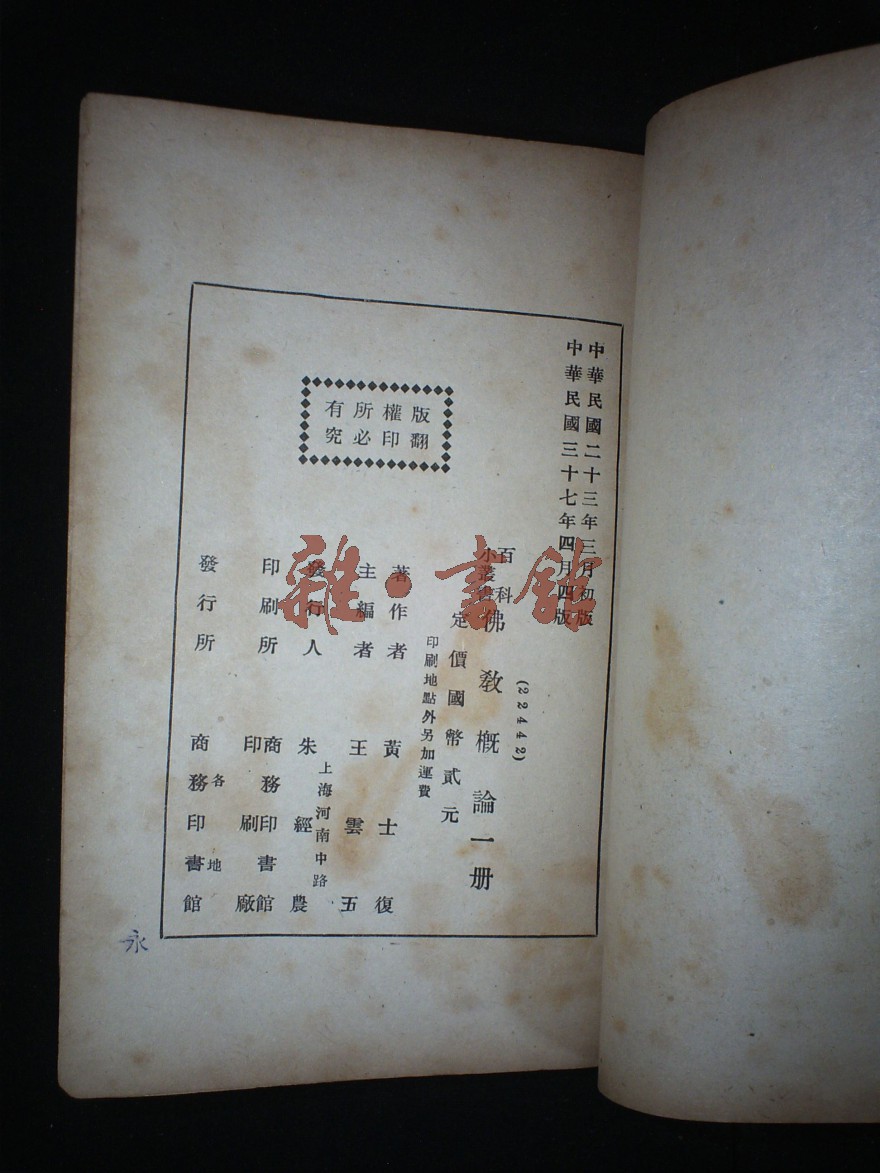 中華民國二十三年三月初版
中華民國三十七年四月四版
(22442)
百科
小叢書
佛教概論一册
定價國幣貳元
印刷地點外另加運費
著作者 黃士復
主編者 王雲五
上海河南中路
發行人 朱經農
印刷所 商務印書館
印刷廠
發行所 各地
商務印書館
版權所有
翻印必究
雜·書館
永